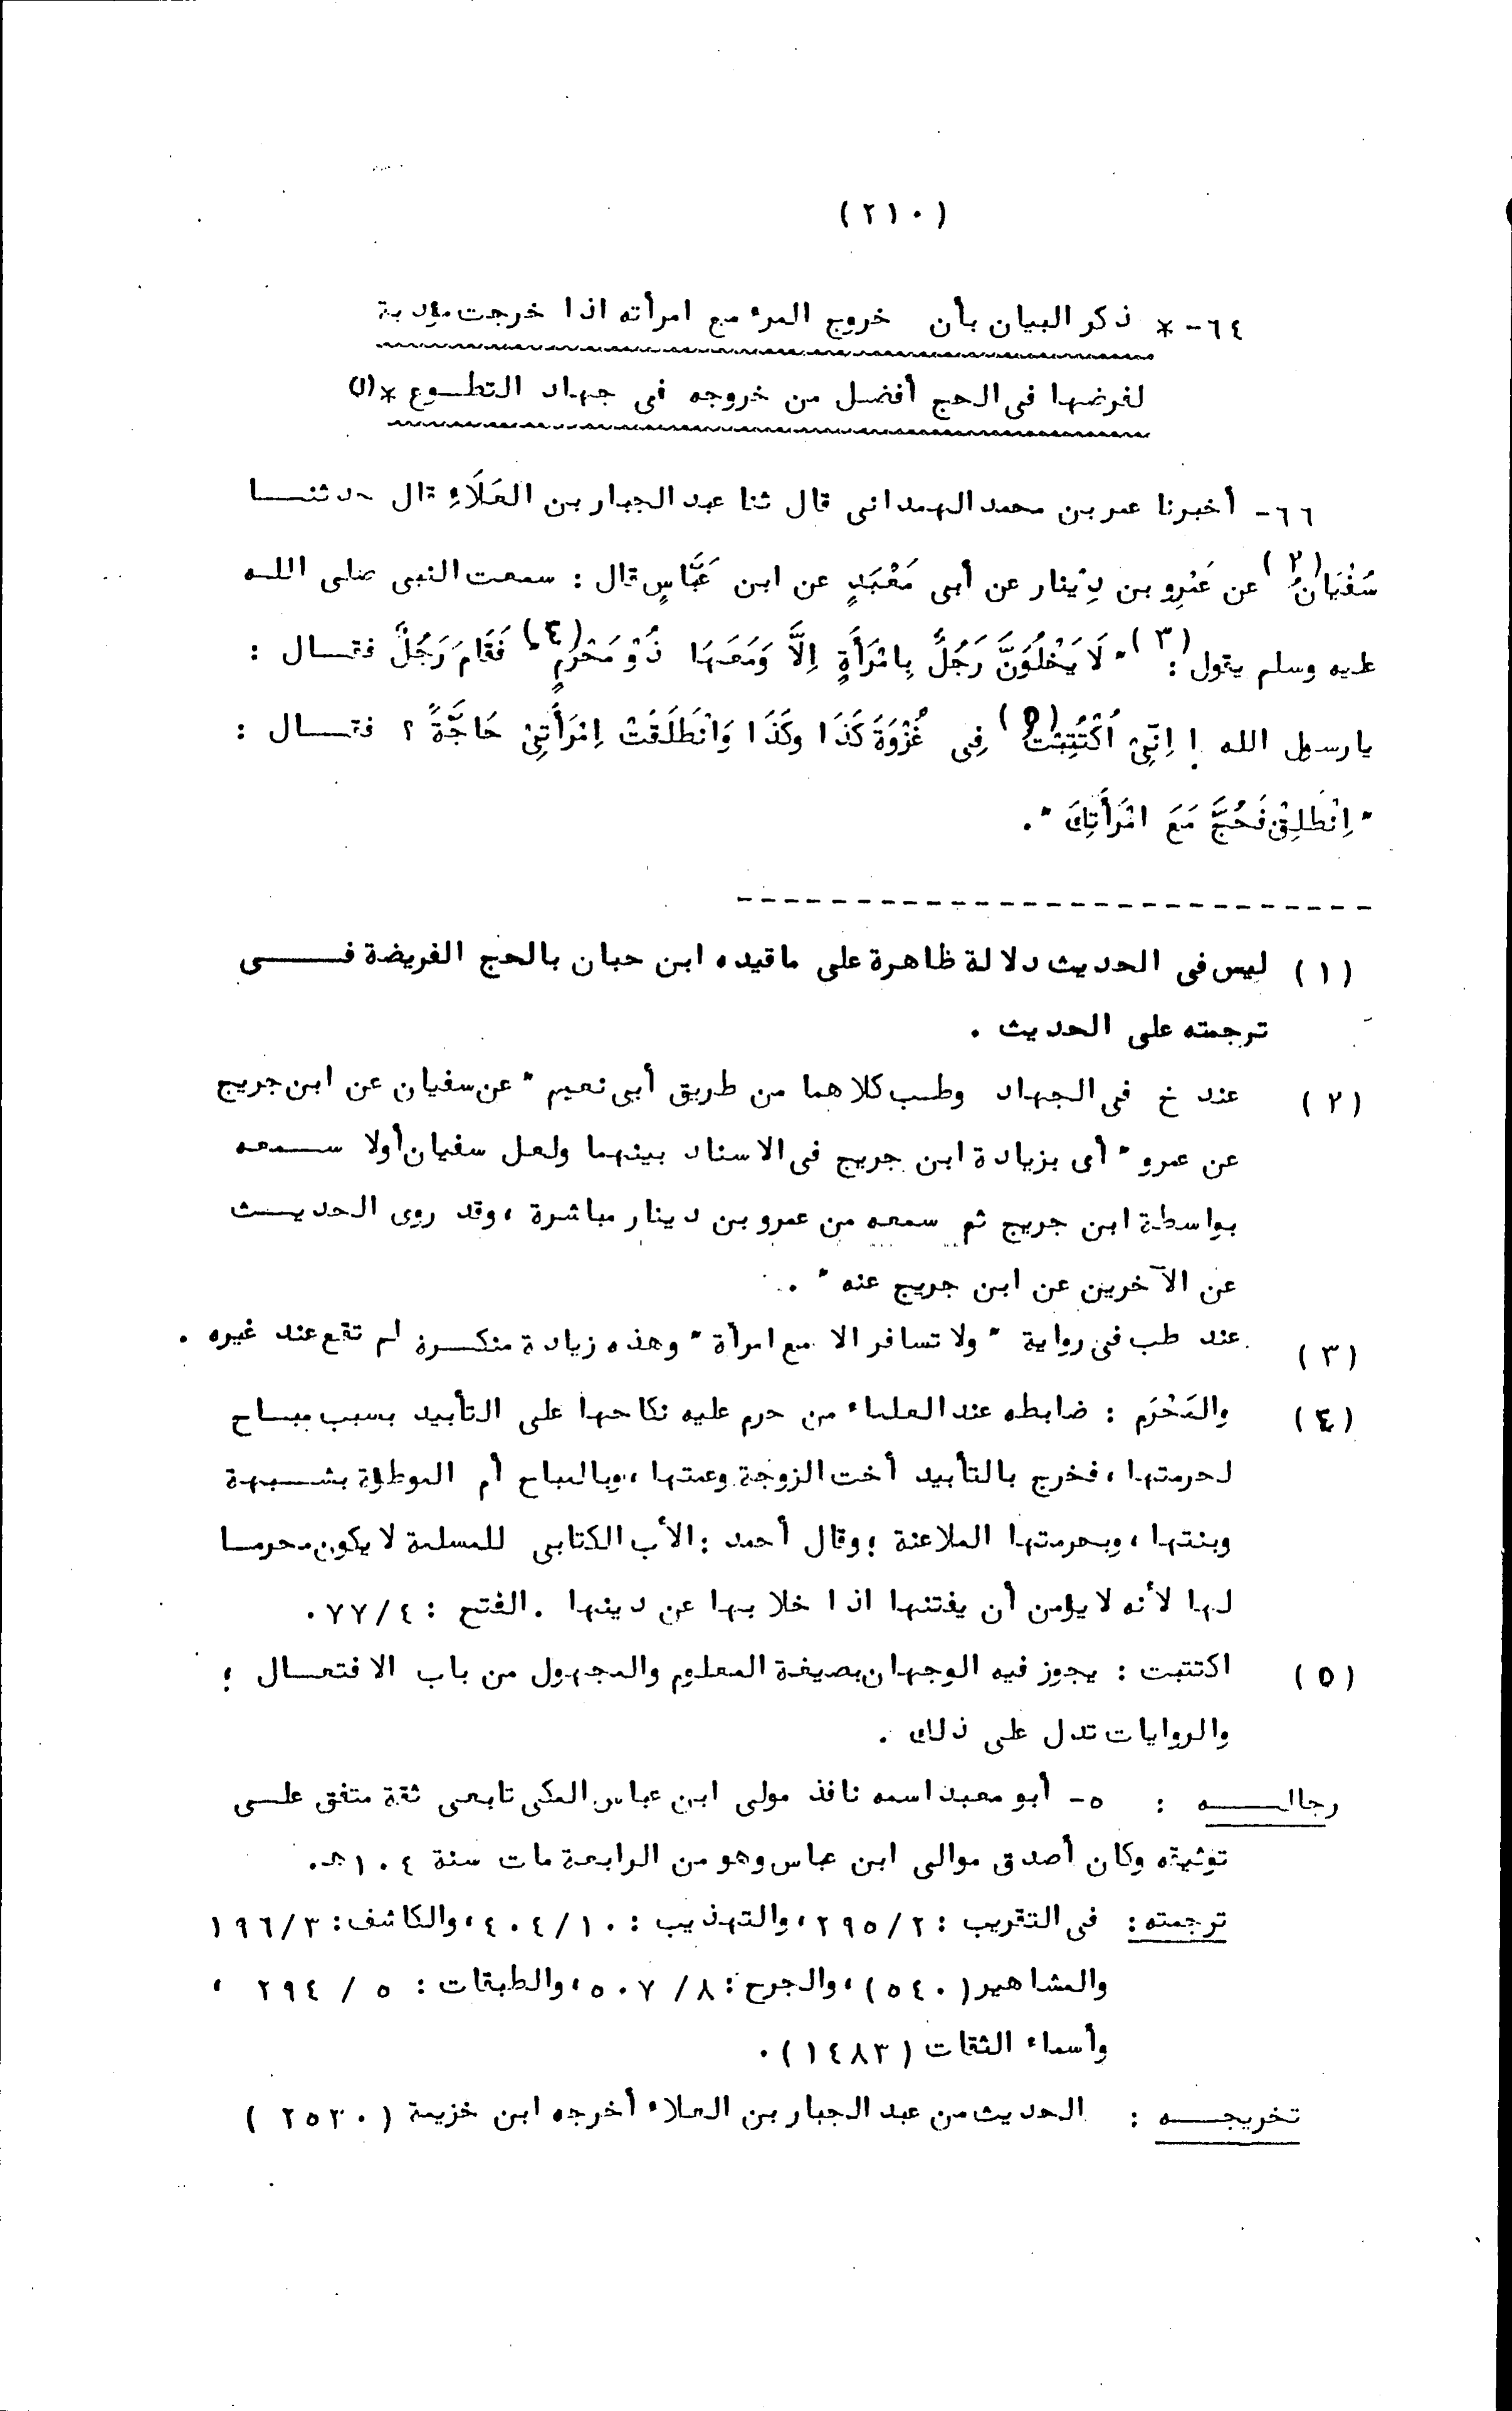 (٢١٠)
٦٤- * ذكر البيان بأن خروج المرء مع امرأته اذا خرجت مؤدية
لفرضها فى الحج أفضل من خروجه فى جهاد التطــوع *(١)
٦٦- أخبرنا عمر بن محمد الهمدانى قال ثنا عبد الجبار بن العَلَاءِ قال حدثنــا
سُفْيَانُ(٢) عن عَمْرِو بن دِيْنار عن أبى مَعْبَدٍ عن ابن عَبَّاسٍ قال : سمعت النبى صلى اللــه
عليه وسلم يقول :(٣) " لَا يَخْلُوَنَّ رَجُلٌ بِامْرَأَةٍ اِلَّا وَمَعَهَا ذُوْ مَحْرَمٍ(٤) " فَقَامَ رَجُلٌ فقــال :
يا رسول الله ! اِنِّىْ اُكْتُتِبْتُ(٥) فِى غَزْوَةَ كَذَا وكَذَا وَانْطَلَقَتْ اِمْرَأَتِىْ حَاجَّةً ؟ فقــال :
" اِنْطَلِقْ فَحُجَّ مَعَ امْرَأَتِكَ " .
(١) ليس فى الحديث دلالة ظاهرة على ماقيده ابن حبان بالحج الفريضة فـــى
ترجمته على الحديث .
(٢) عند خ فى الجهاد وطب كلاهما من طريق أبى نعيم " عن سفيان عن ابن جريج
عن عمرو " أى بزيادة ابن جريج فى الاسناد بينهما ولعل سفيان أولا ســمعه
بواسطة ابن جريج ثم سمعه من عمرو بن دينار مباشرة ، وقد روى الحديــث
عن الآخرين عن ابن جريج عنه " .
(٣) عند طب فى رواية " ولا تسافر الا مع امرأة " وهذه زيادة منكــرة لم تقع عند غيره .
(٤) والمَحْرَم : ضابطه عند العلماء من حرم عليه نكاحها على التأبيد بسبب مبــاح
لحرمتها ، فخرج بالتأبيد أخت الزوجة وعمتها ، وبالمباح أم الموطؤة بشــبهة
وبنتها ، وبحرمتها الملاعنة ؛ وقال أحمد : الأب الكتابى للمسلمة لا يكون محرمــا
لها لأنه لا يؤمن أن يفتنها اذا خلا بها عن دينها . الفتح : ٧٧/٤ .
(٥) اكتتبت : يجوز فيه الوجهان بصيغة المعلوم والمجهول من باب الافتعــال ؛
والروايات تدل على ذلك .
رجالــــه : ٥- أبو معبد اسمه نافذ مولى ابن عباس المكى تابعى ثقة متفق علــى
توثيقه وكان أصدق موالى ابن عباس وهو من الرابعة مات سنة ١٠٤هـ .
ترجمته : فى التقريب : ٢٩٥/٢ ، والتهذيب : ٤٠٤/١٠ ، والكاشف : ١٩٦/٣
والمشاهير (٥٤٠) ، والجرح : ٥٠٧/٨ ، والطبقات : ٢٩٤/٥ ،
وأسماء الثقات (١٤٨٣) .
تخريجــه : الحديث من عبد الجبار بن العلاء أخرجه ابن خزيمة (٢٥٣٠)